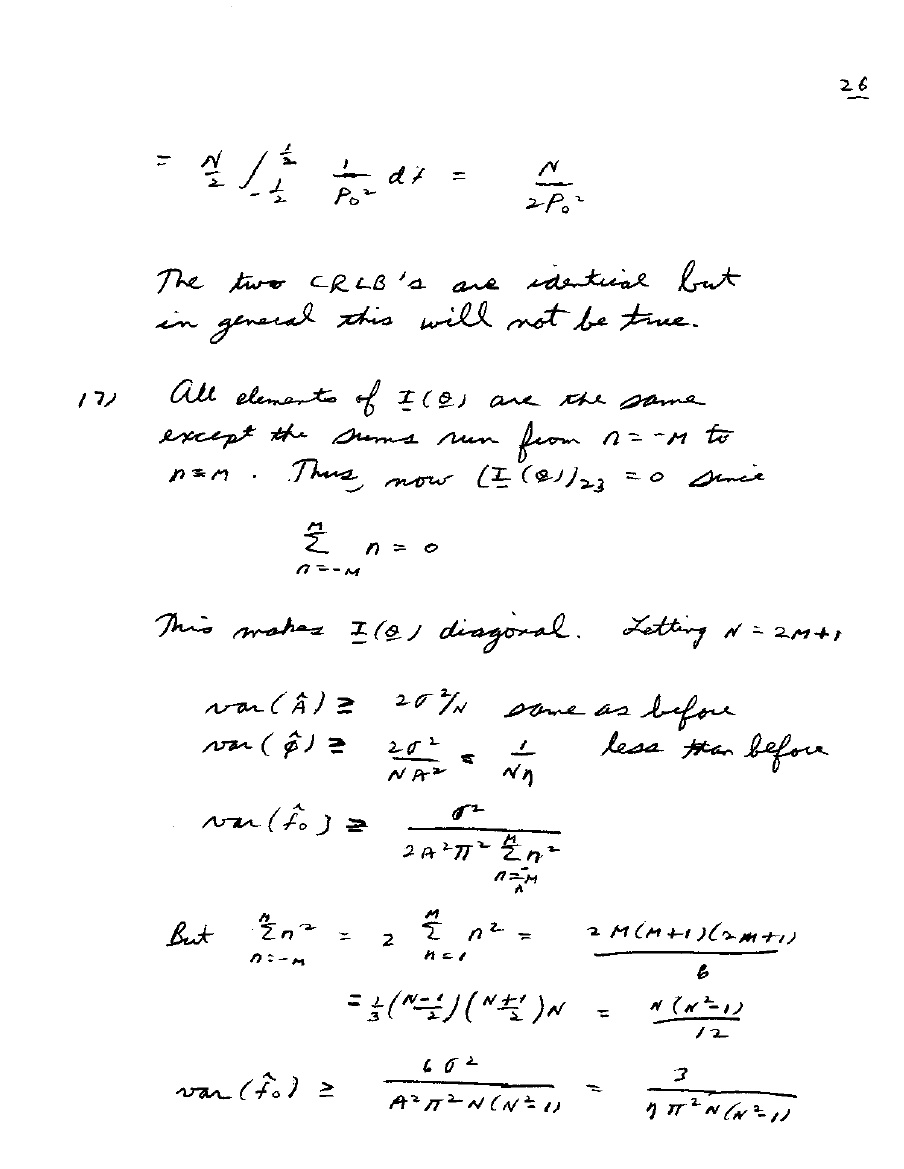 26
= N/2 ∫_{-1/2}^{1/2} 1/P₀² df = N/2P₀²
The two CRLB's are identical but
in general this will not be true.
17) All elements of I(θ) are the same
except the sums run from n = -M to
n = M. Thus, now [I(θ)]₂₃ = 0 since
∑_{n=-M}^{M} n = 0
This makes I(θ) diagonal. Letting N = 2M+1
var(Â) ≥ 2σ²/N same as before
var(φ̂) ≥ 2σ²/NA² = 1/Nη less than before
var(f̂₀) ≥ σ²/(2A²π² ∑_{n=-M}^{M} n²)
But ∑_{n=-M}^{M} n² = 2 ∑_{n=1}^{M} n² = 2M(M+1)(2M+1)/6
= 1/3 (N-1/2)(N+1/2)N = N(N²-1)/12
var(f̂₀) ≥ 6σ²/(A²π²N(N²-1)) = 3/(ηπ²N(N²-1))